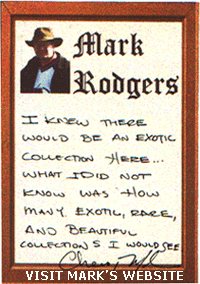 Mark
Rodgers
I KNEW THERE
WOULD BE AN EXOTIC
COLLECTION HERE...
WHAT I DID NOT
KNOW WAS HOW
MANY EXOTIC, RARE,
AND BEAUTIFUL
COLLECTIONS I WOULD SEE
VISIT MARK'S WEBSITE